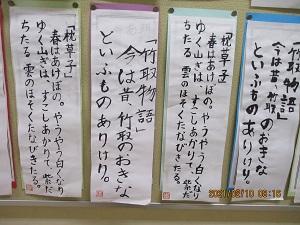 枕草子
春はあけぼの。やうやう白くなり
ゆく山ぎは、すこしあかりて、紫だ
ちたる 雲のほそくたなびきたる。
「竹取物語」
今は昔、竹取のおきな
といふものありけり。
枕草子
春はあけぼの。やうやう白くなり
ゆく山ぎは、すこしあかりて、紫だ
ちたる 雲のほそくたなびきたる。
「竹取物語」
今は昔、竹取のおきな
といふものありけり。